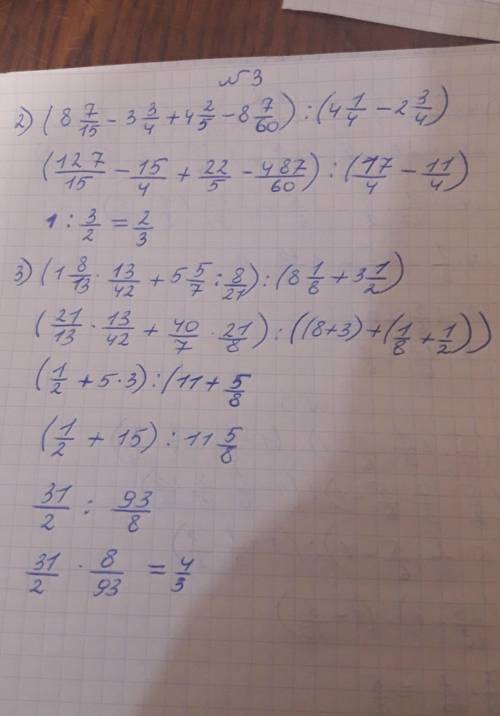 №3
2) (8 7/15 - 3 3/4 + 4 2/5 - 8 7/60) : (4 1/4 - 2 3/4)
(127/15 - 15/4 + 22/5 - 487/60) : (17/4 - 11/4)
1 : 3/2 = 2/3
3) (1 8/13 · 13/42 + 5 5/7 : 8/21) : (8 1/8 + 3 1/2)
(21/13 · 13/42 + 40/7 · 21/8) : ((8+3) + (1/8 + 1/2))
(1/2 + 5·3) : (11 + 5/8
(1/2 + 15) : 11 5/8
31/2 : 93/8
31/2 · 8/93 = 4/3